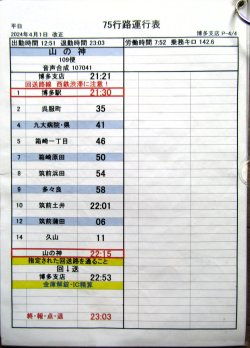 平日
75行路運行表
2024年4月1日 改正
博多支店 P-4/4
出勤時間 12:51 退勤時間 23:03
労働時間 7:52 乗務キロ 142.6
山の神
109便
音声合成 107041
博多支店 21:21
回送路線 西鉄渋滞に注意!
1 博多駅 21:30
2 呉服町 35
4 九大病院・県 41
5 箱崎一丁目 46
7 箱崎原田 50
8 筑前浜田 54
9 多々良 58
10 筑前土井 22:01
12 筑前蒲田 06
14 久山 11
山の神 22:15
指定された回送路を通ること
回↓送
博多支店 22:53
金庫解錠・IC精算
終・報・点・退 23:03